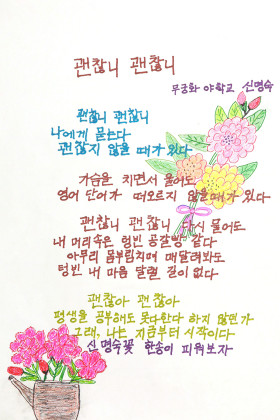 괜찮니 괜찮니
무궁화 야학교 신명숙
괜찮니 괜찮니
나에게 묻는다
괜찮지 않을 때가 있다
가슴을 치면서 울어도
영어 단어가 떠오르지 않을때가 있다
괜찮니 괜찮니 다시 물어도
내 머리속은 텅빈 공갈빵 같다
아무리 몸부림치며 매달려봐도
텅빈 내 마음 달랠 길이 없다
괜찮아 괜찮아
평생을 공부해도 못다한다 하지 않던가
그래, 나는 지금부터 시작이다
신명숙꽃 한송이 피워보자